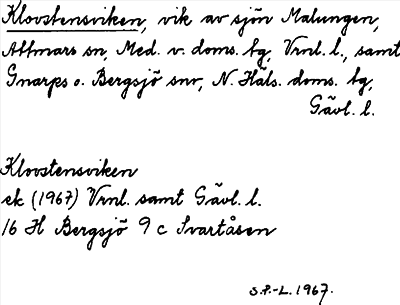 Klovstensviken, vik av sjön Malungen,
Attmars sn, Med. v. doms. tg, Vrnl. l., samt
Gnarps o. Bergsjö snr, N. Häls. doms. tg,
Gävl. l.
Klovstensviken
ek (1967) Vrnl. samt Gävl. l.
16 H Bergsjö 9 c Svartåsen
S.P.-L. 1967.